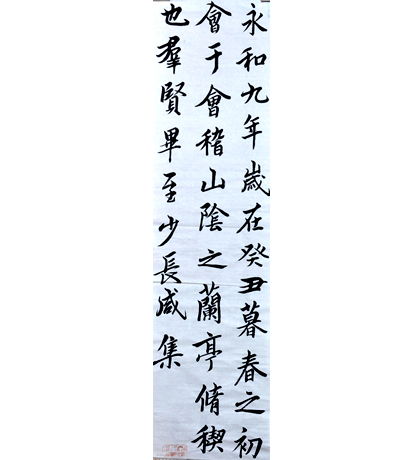 永和九年歲在癸丑暮春之初
會于會稽山陰之蘭亭脩稧
也羣賢畢至少長咸集